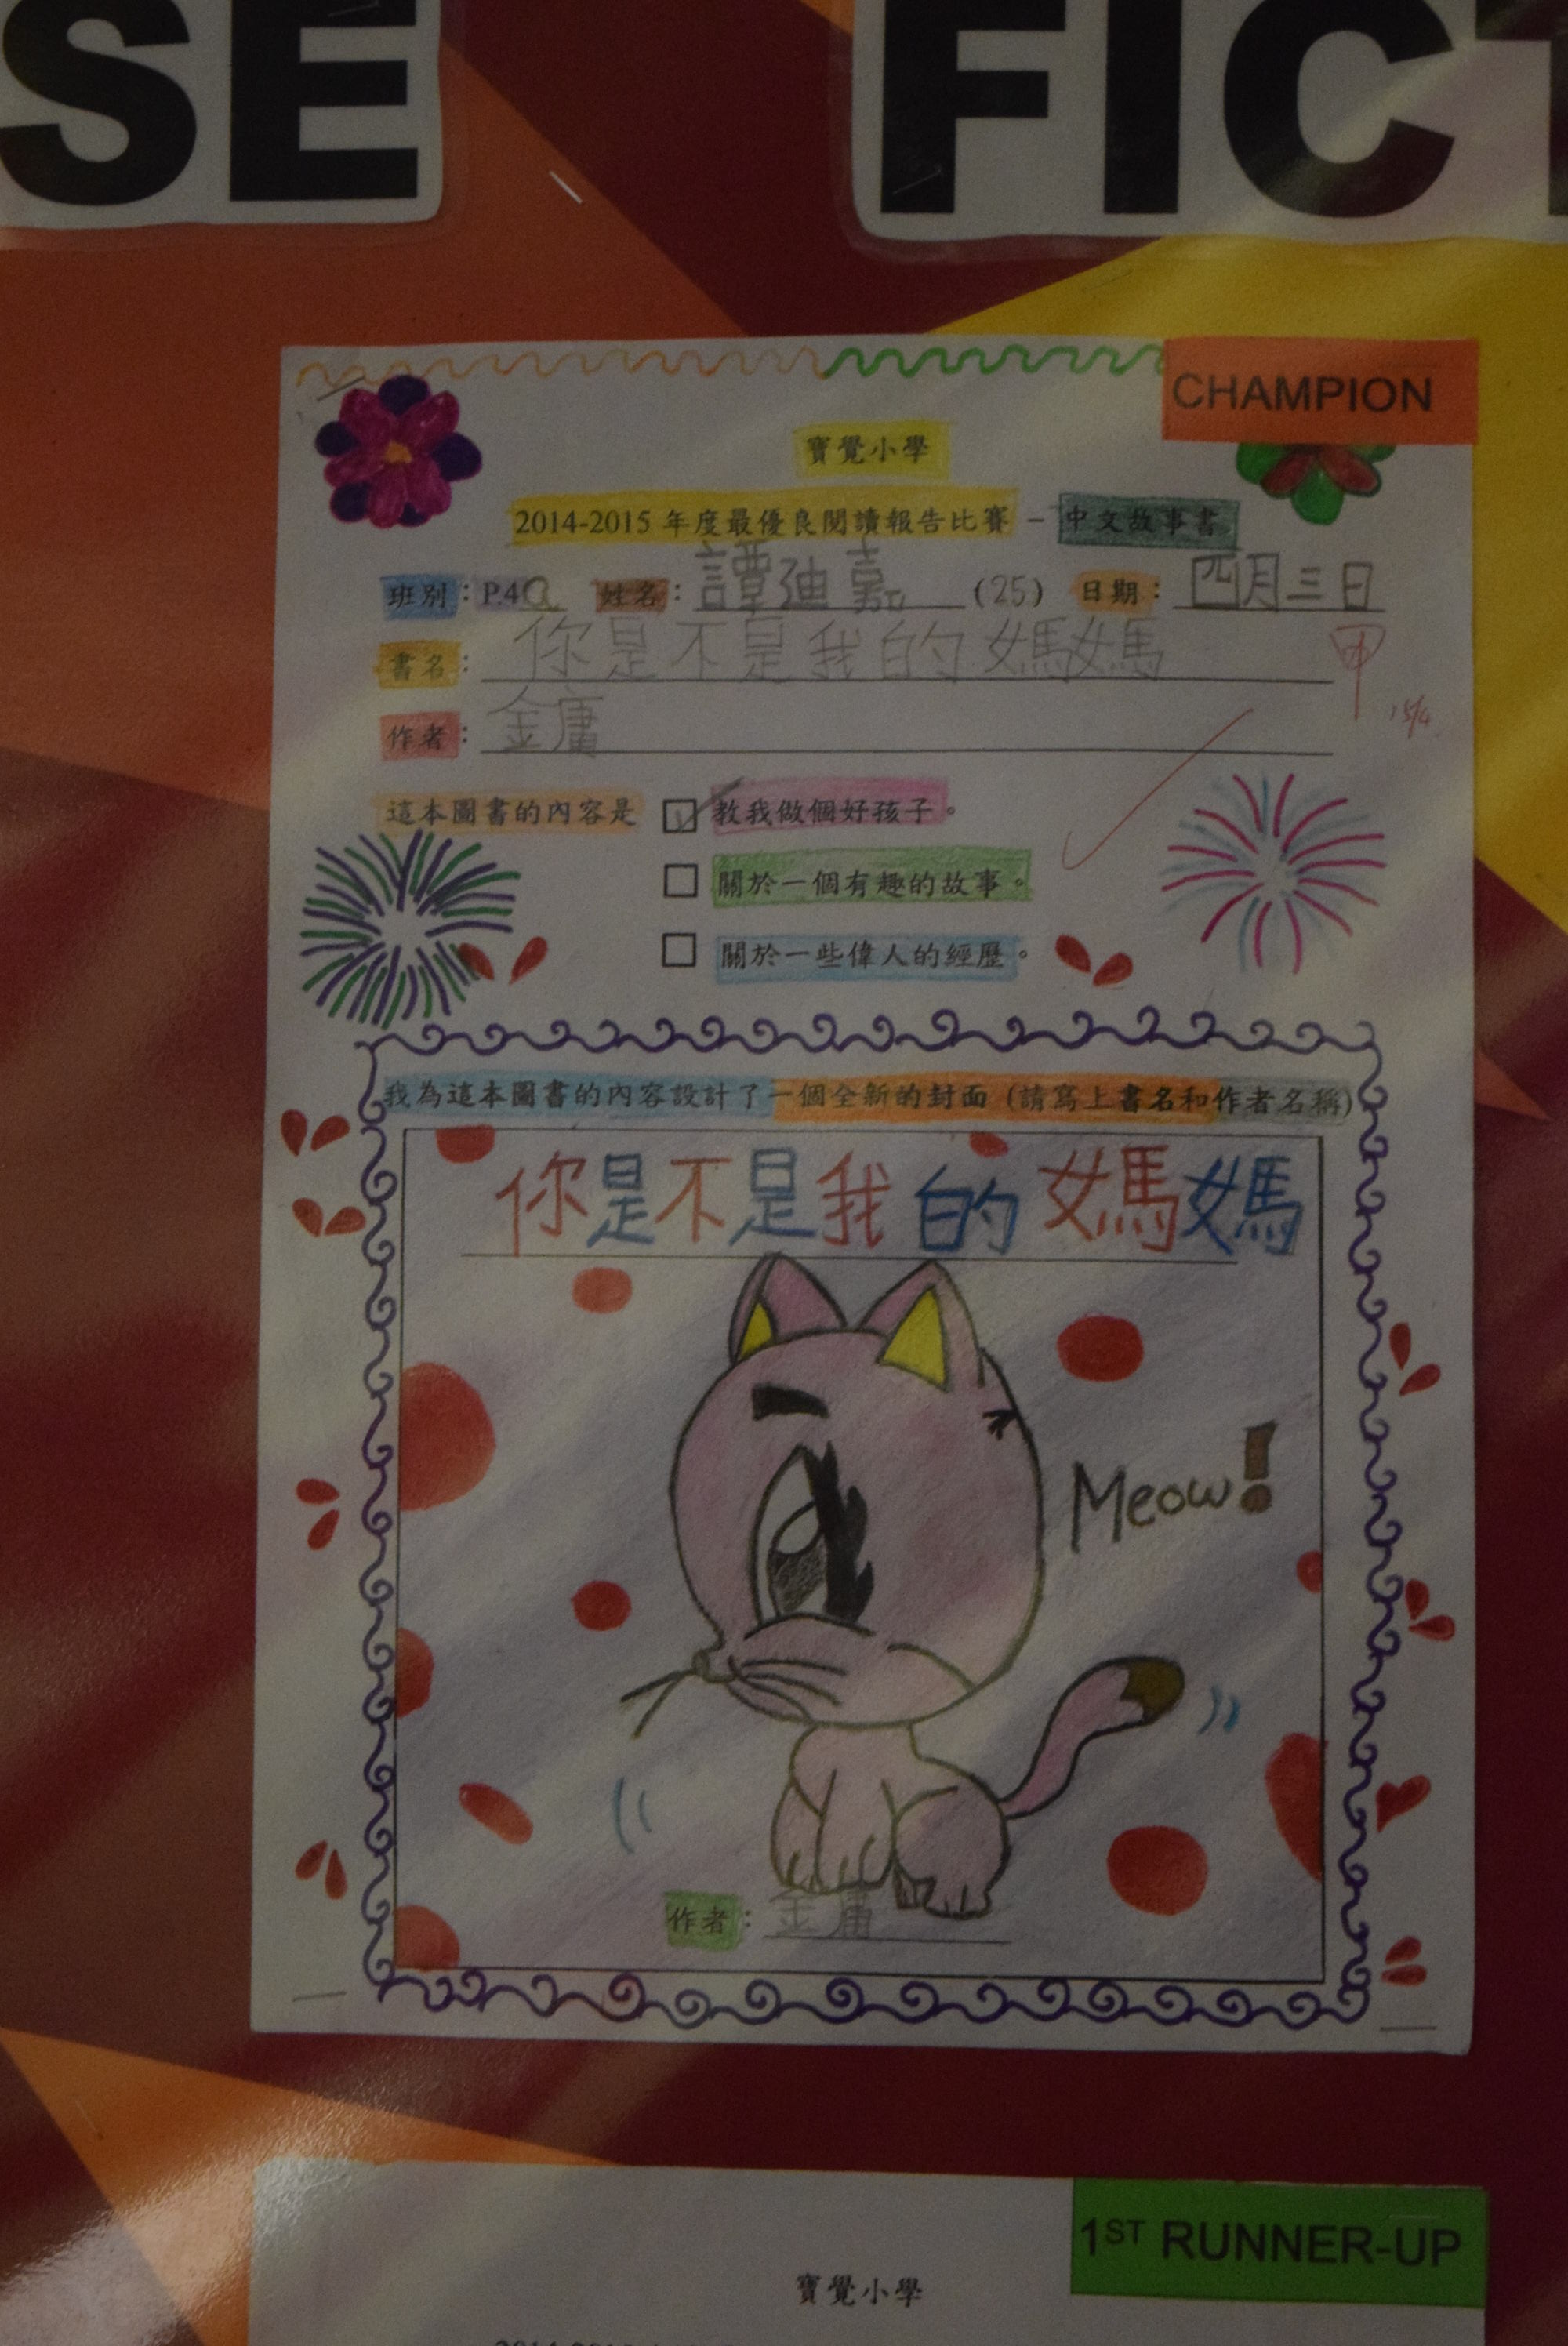 SE FICT
CHAMPION
寶覺小學
2014-2015 年度最優良閱讀報告比賽 － 中文故事書
班別：P.4a 姓名：譚迪嘉 (25) 日期：四月三日
書名：你是不是我的媽媽
甲
作者：金庸
15/4
這本圖書的內容是 教我做個好孩子。
關於一個有趣的故事。
關於一些偉人的經歷。
我為這本圖書的內容設計了一個全新的封面 (請寫上書名和作者名稱)
你是不是我的媽媽
Meow!
作者：金庸
1ST RUNNER-UP
寶覺小學